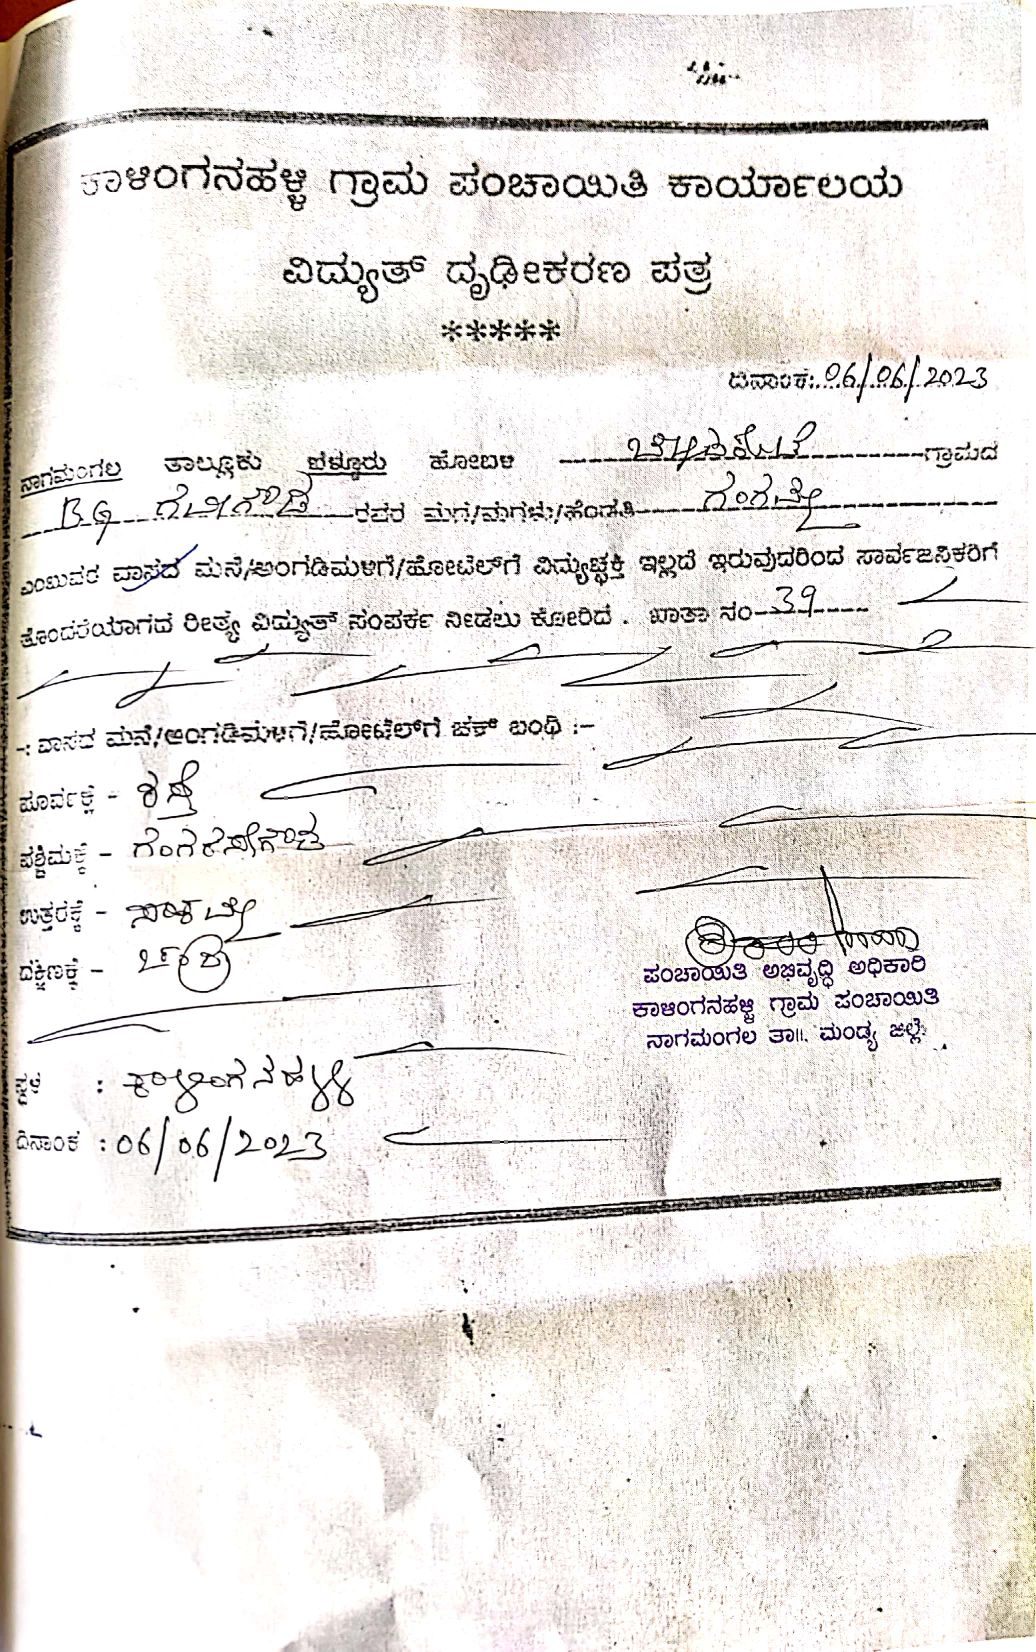 ಕಾಳಿಂಗನಹಳ್ಳಿ ಗ್ರಾಮ ಪಂಚಾಯಿತಿ ಕಾರ್ಯಾಲಯ
ವಿದ್ಯುತ್ ದೃಢೀಕರಣ ಪತ್ರ
*****
ದಿನಾಂಕ:06/06/2023
ನಾಗಮಂಗಲ ತಾಲ್ಲೂಕು ಬೆಳ್ಳೂರು ಹೋಬಳಿ ಗ್ರಾಮದ
BG ರವರ ಮಗ/ಮಗಳು/ಹೆಂಡತಿ ಗಂಗಮ್ಮ
ಎಂಬುವರ ವಾಸದ ಮನೆ/ಅಂಗಡಿಮಳಿಗೆ/ಹೋಟೆಲ್‌ಗೆ ವಿದ್ಯುಚ್ಛಕ್ತಿ ಇಲ್ಲದೆ ಇರುವುದರಿಂದ ಸಾರ್ವಜನಿಕರಿಗೆ
ತೊಂದರೆಯಾಗದ ರೀತ್ಯ ವಿದ್ಯುತ್ ಸಂಪರ್ಕ ನೀಡಲು ಕೋರಿದೆ . ಖಾತಾ ನಂ 39
-: ವಾಸದ ಮನೆ/ಅಂಗಡಿಮಳಿಗೆ/ಹೋಟೆಲ್‌ಗೆ ಚಕ್ ಬಂಧಿ :-
ಪೂರ್ವಕ್ಕೆ - ರಸ್ತೆ
ಪಶ್ಚಿಮಕ್ಕೆ -
ಉತ್ತರಕ್ಕೆ -
ದಕ್ಷಿಣಕ್ಕೆ -
ಪಂಚಾಯಿತಿ ಅಭಿವೃದ್ಧಿ ಅಧಿಕಾರಿ
ಕಾಳಿಂಗನಹಳ್ಳಿ ಗ್ರಾಮ ಪಂಚಾಯಿತಿ
ನಾಗಮಂಗಲ ತಾ॥. ಮಂಡ್ಯ ಜಿಲ್ಲೆ.
ಸ್ಥಳ : ಕಾಳಿಂಗನಹಳ್ಳಿ
ದಿನಾಂಕ : 06/06/2023